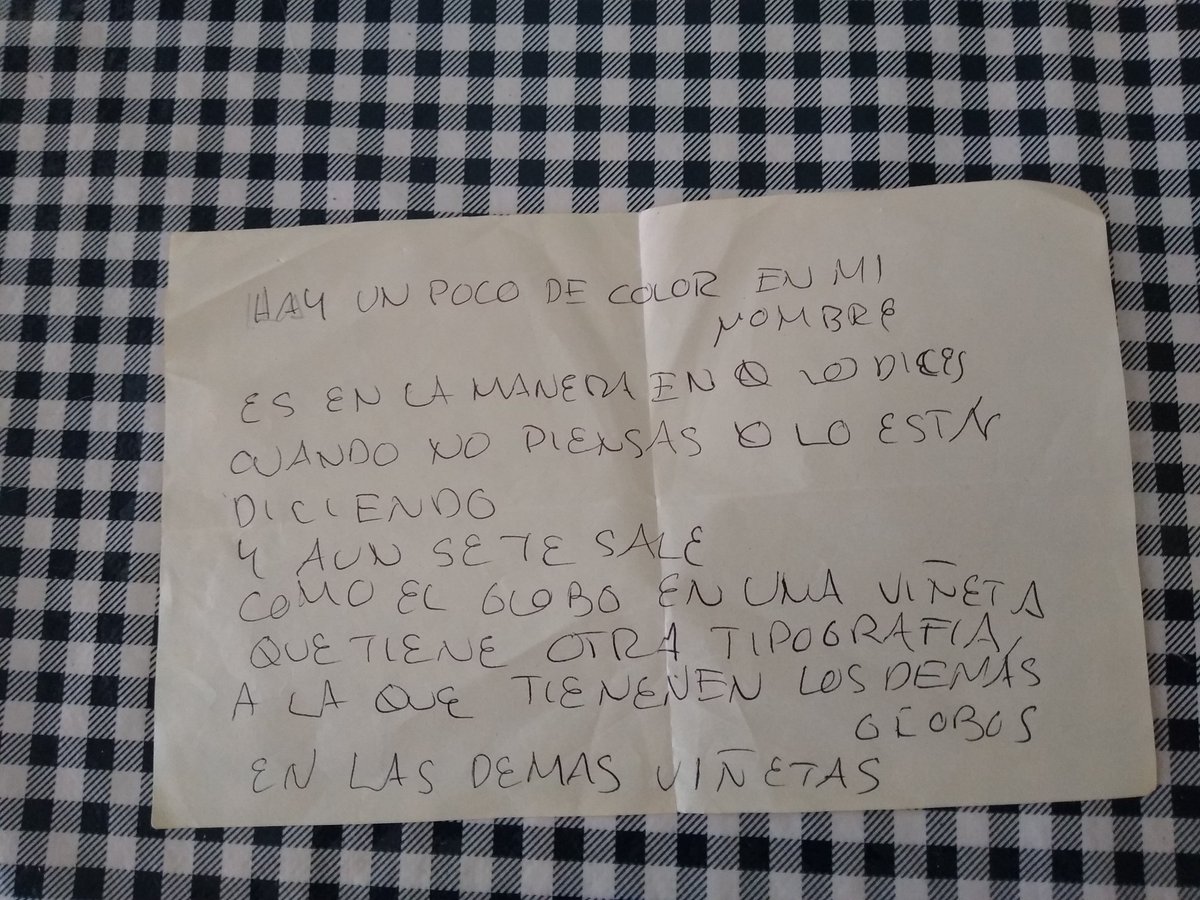 HAY UN POCO DE COLOR EN MI
NOMBRE
ES EN LA MANERA EN Q LO DICES
CUANDO NO PIENSAS Q LO ESTÁS
DICIENDO
Y AUN SE TE SALE
COMO EL GLOBO EN UNA VIÑETA
QUE TIENE OTRA TIPOGRAFIA,
A LA QUE TIENENEN LOS DEMÁS
GLOBOS
EN LAS DEMAS VIÑETAS